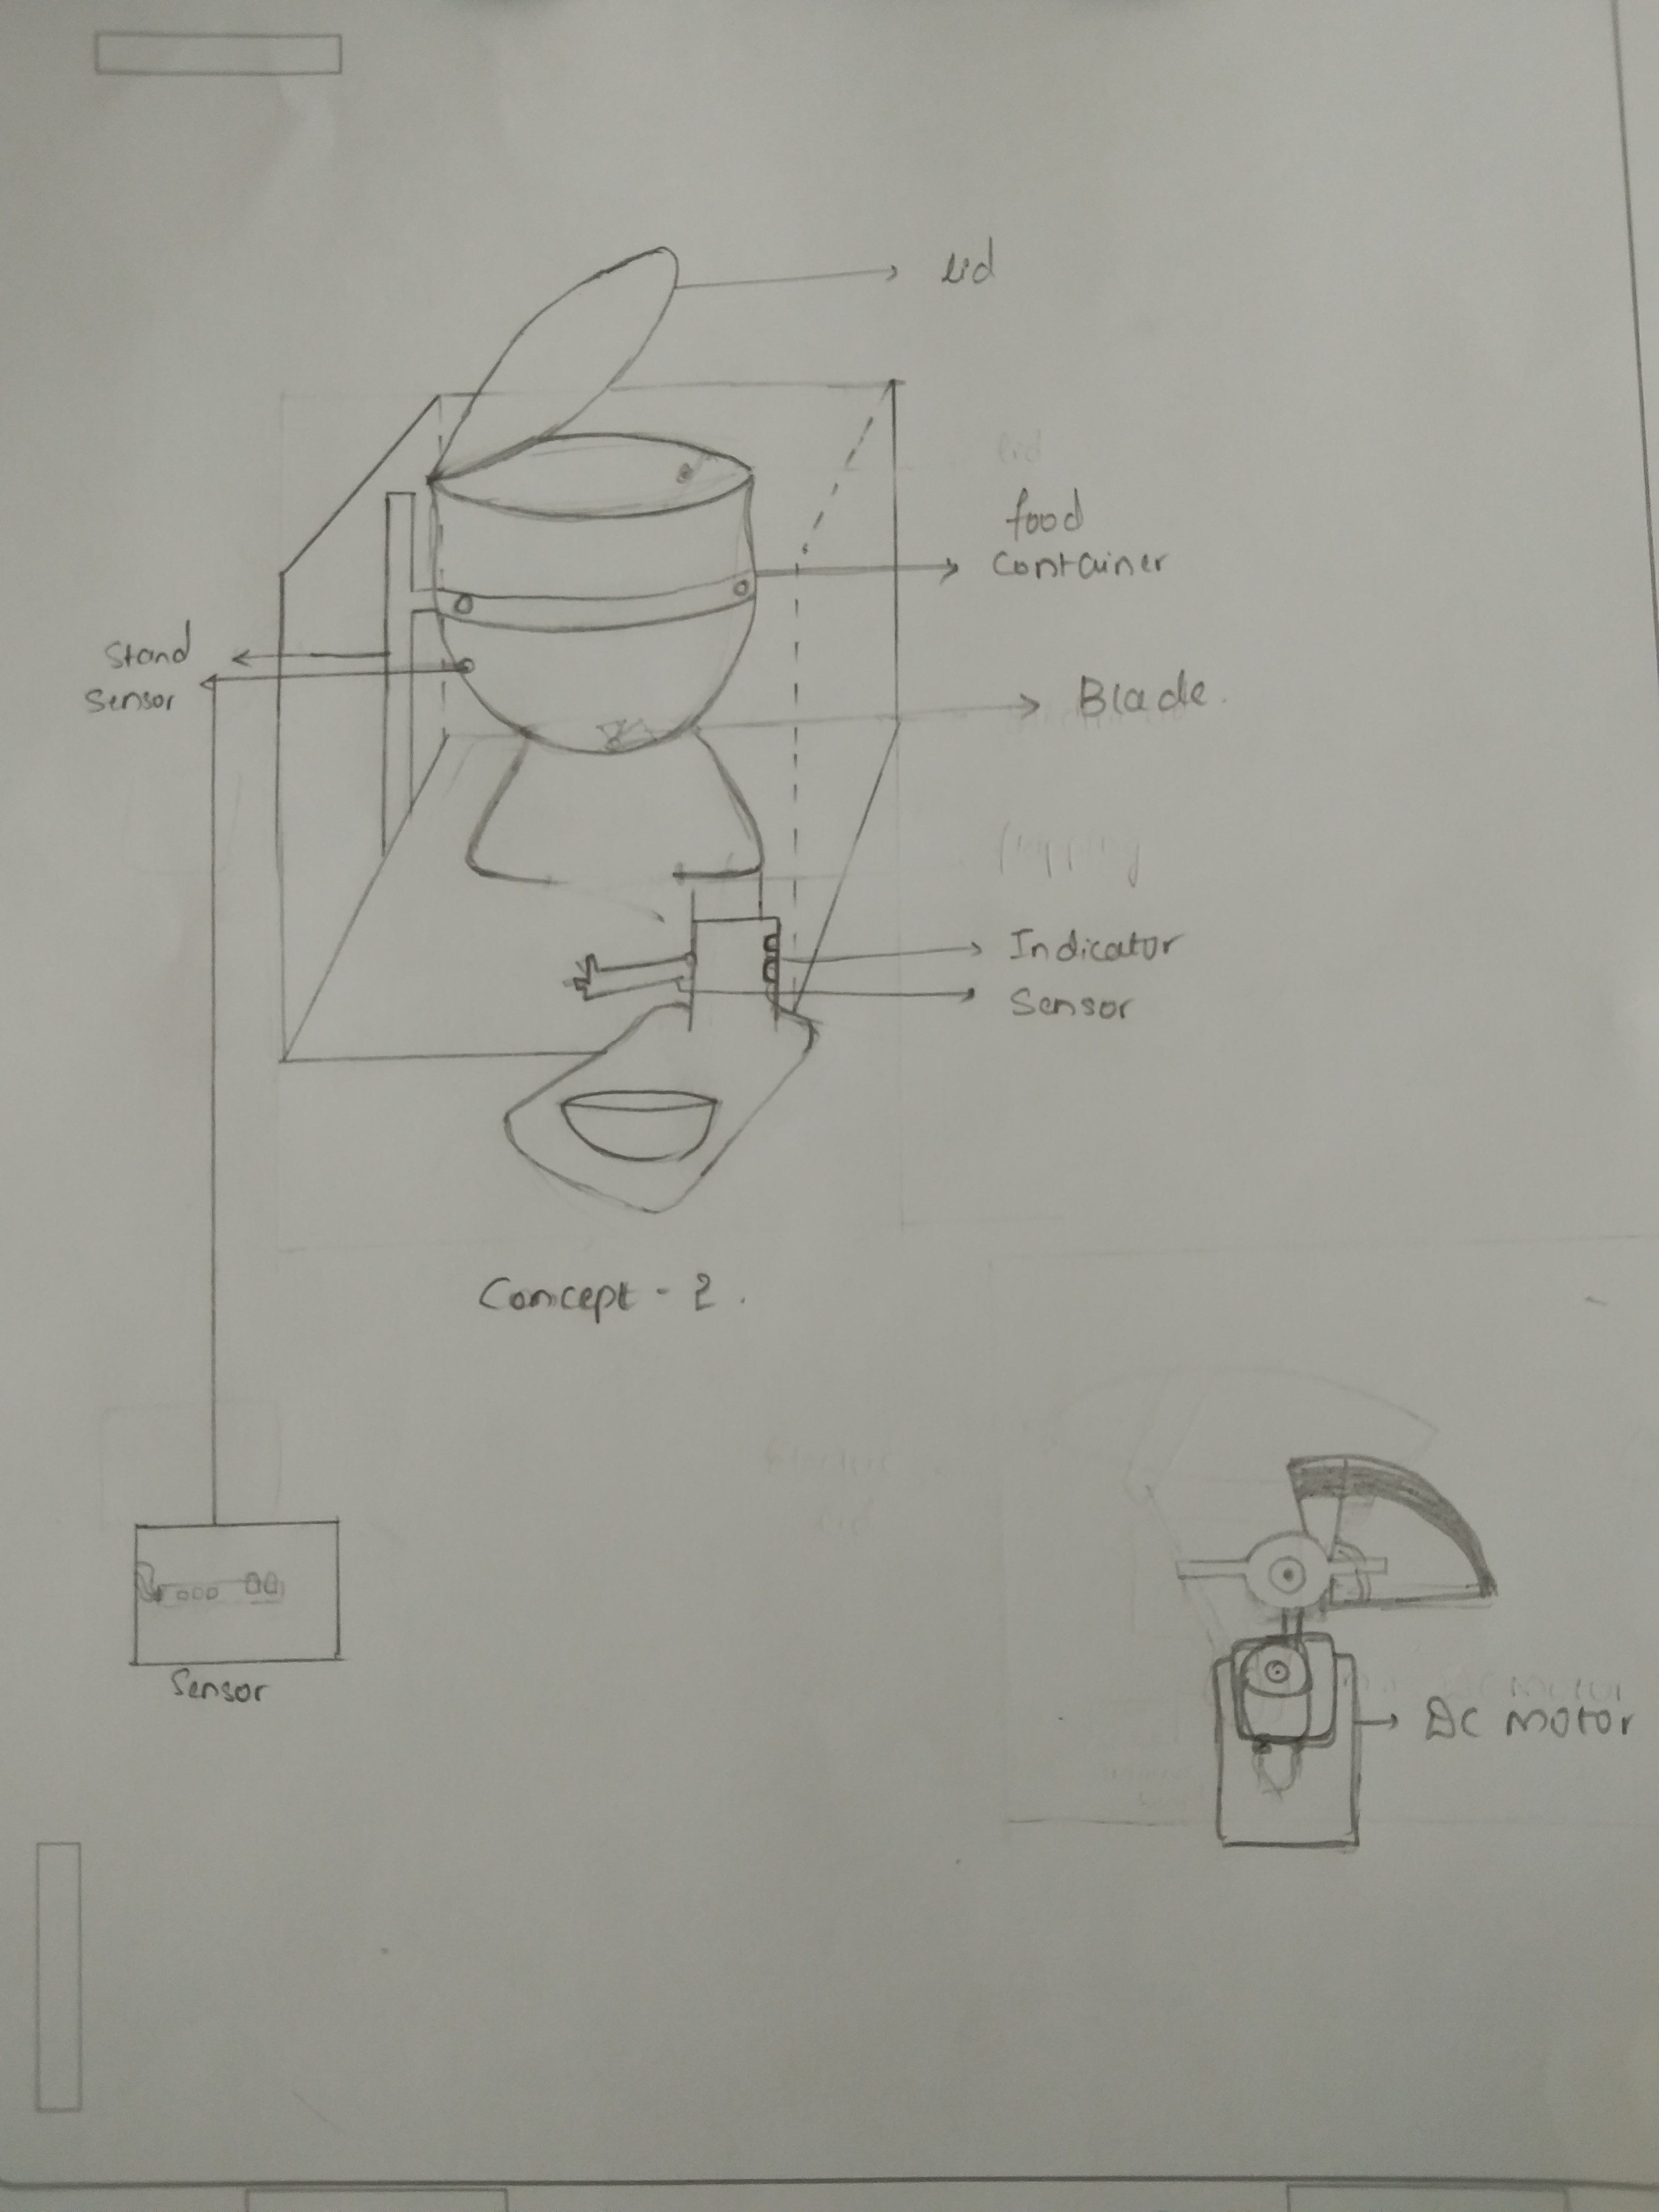 lid
food
container
Stand
Sensor
Blade.
Indicator
Sensor
Concept - 2.
Sensor
DC Motor